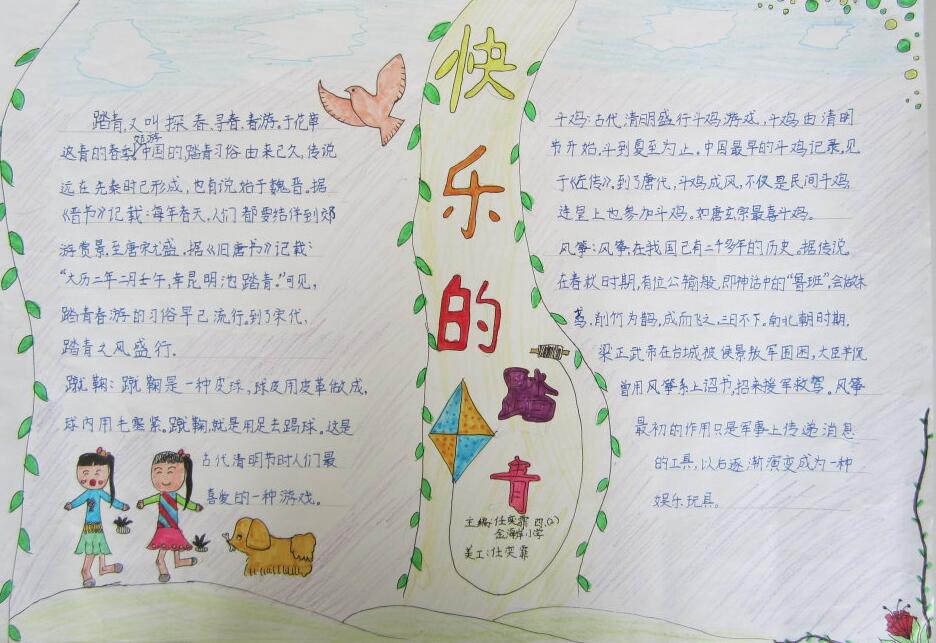 快乐的踏青
踏青,又叫探春、寻春、春游。于花草
返青的春季,中国的踏青习俗由来已久,传说
远在先秦时已形成,也有说始于魏晋。据
《晋书》记载:每年春天,人们都要结伴到郊
游赏景,至唐宋尤盛。据《旧唐书》记载:
“大历二年二月壬午,幸昆明池踏青。”可见,
踏青春游的习俗早已流行。到了宋代,
踏青之风盛行.
蹴鞠:蹴鞠是一种皮球,球皮用皮革做成,
球内用毛塞紧。蹴鞠,就是用足去踢球。这是
古代清明节时人们最
喜爱的一种游戏。
主编:任奕霏 四.(2)
金海岸小学
美工:任奕霏
斗鸡:古代,清明盛行斗鸡游戏,斗鸡由清明
节开始,斗到夏至为止。中国最早的斗鸡记录,见
于《左传》。到了唐代,斗鸡成风,不仅是民间斗鸡,
连皇上也参加斗鸡。如唐玄宗最喜斗鸡。
风筝:风筝,在我国已有二千多年的历史。据传说,
在春秋时期,有位公输般,即神话中的“鲁班”,会做木
鸢,削竹为鹊,成而飞之,三日不下。南北朝时期,
梁正武帝在台城被侯景叛军围困,大臣羊侃
曾用风筝系上诏书,招来援军救驾。风筝
最初的作用只是军事上传递消息
的工具,以后逐渐演变成为一种
娱乐玩具。